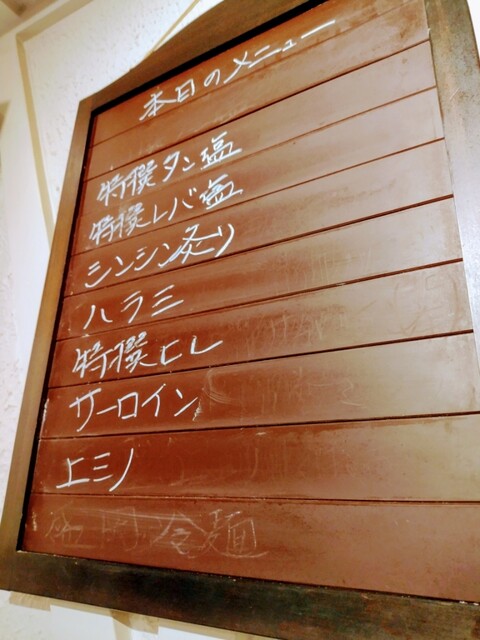 本日のメニュー
特撰タン塩
特撰レバ塩
シンシン炙り
ハラミ
特撰ヒレ
サーロイン
上ミノ
冷麺